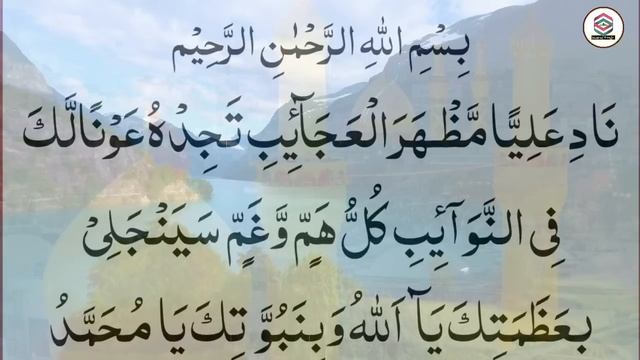 بِسْمِ اللهِ الرَّحْمٰنِ الرَّحِيْمِ
نَادِ عَلِيًّا مَّظْهَرَ الْعَجَآئِبِ تَجِدْهُ عَوْنًا لَّكَ
فِى النَّوَآئِبِ كُلُّ هَمٍّ وَّغَمٍّ سَيَنْجَلِىْ
بِعَظَمَتِكَ يَآ اَللهُ وَبِنَبُوَّتِكَ يَا مُحَمَّدُ